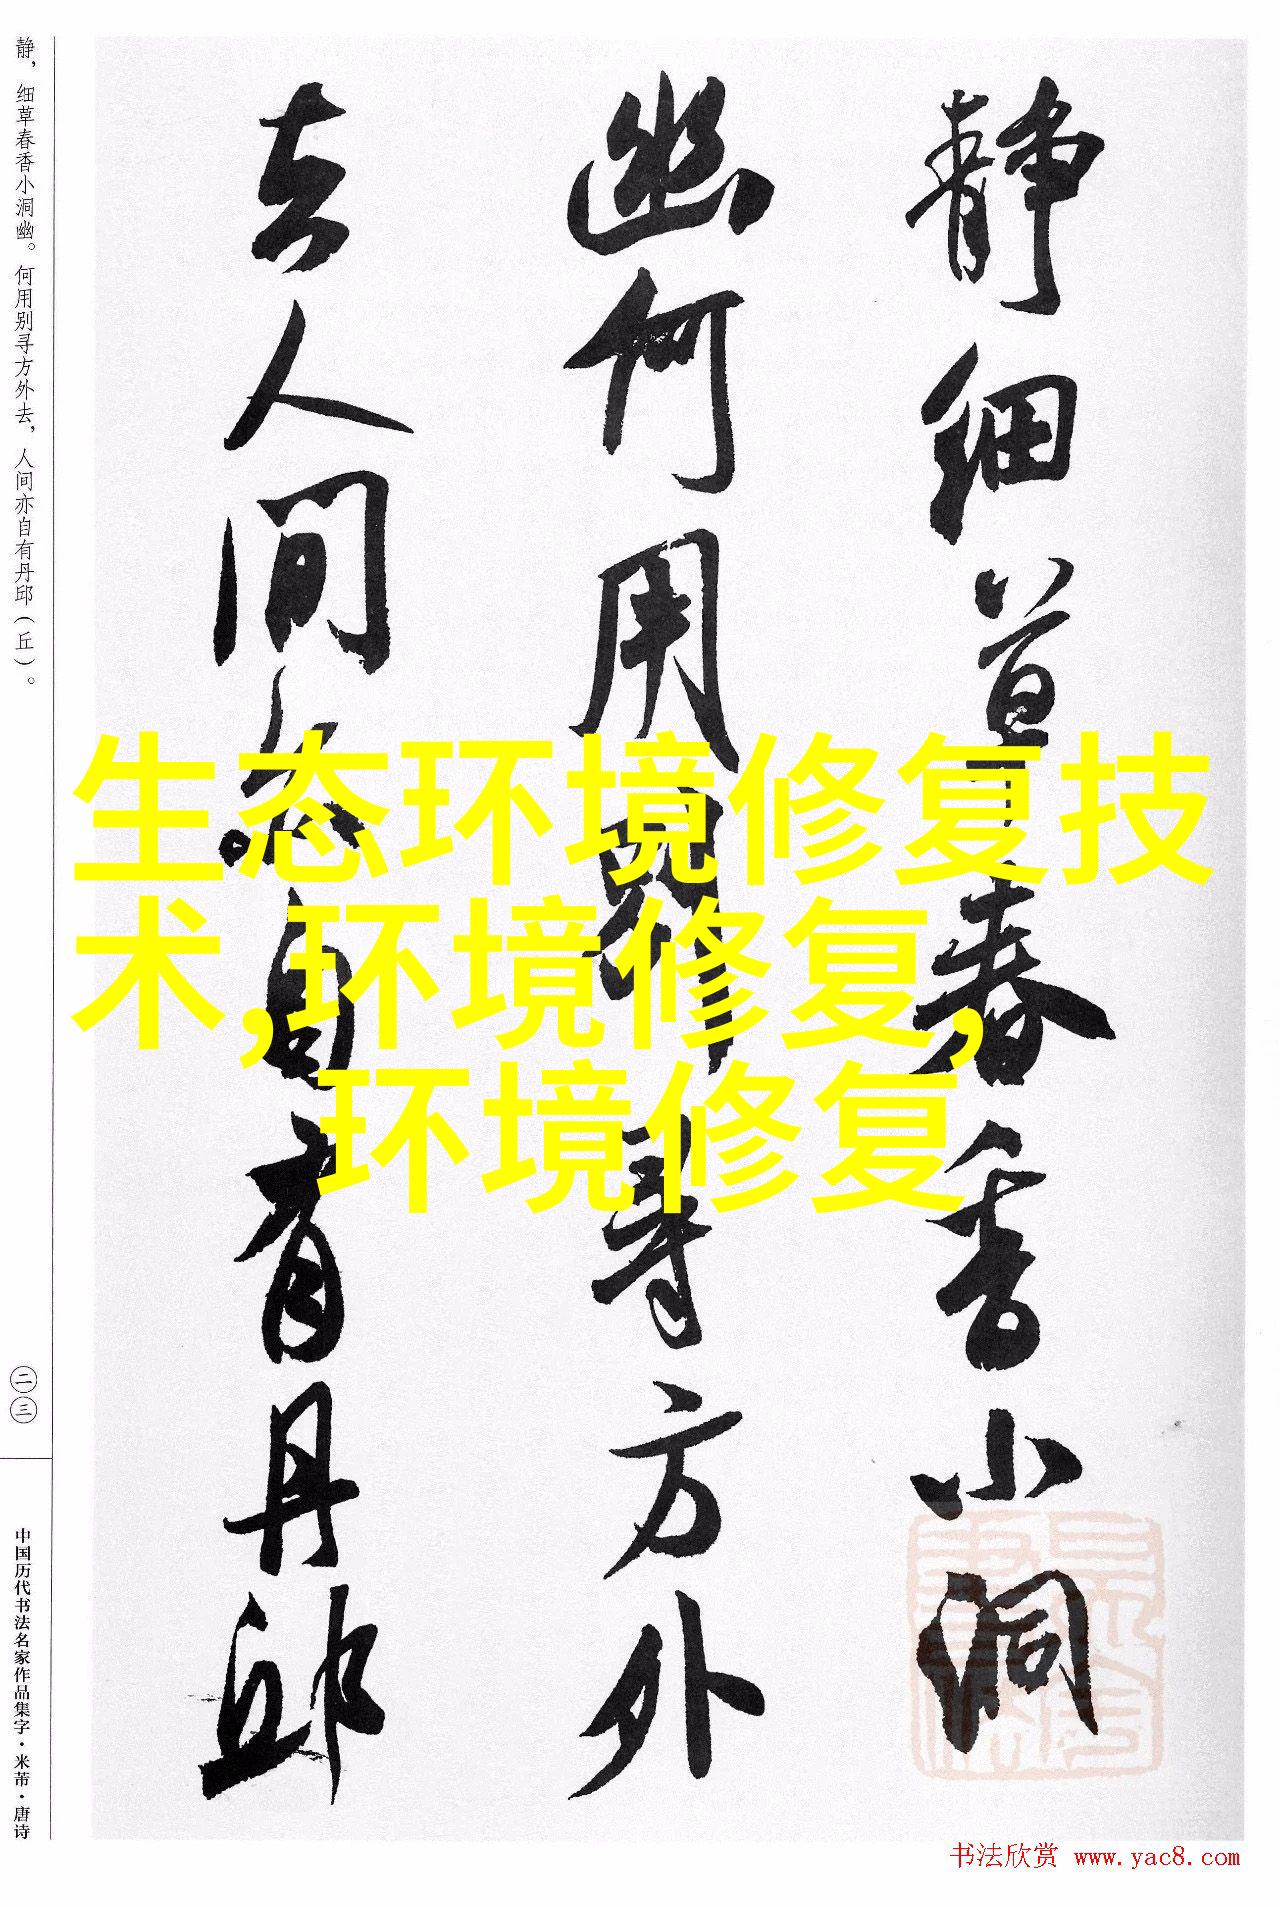 静，细草春香小洞幽。何用别寻方外去，人间亦自有丹邱（丘）。
二三
中国历代书法名家作品集字·米芾·唐诗
静细草春香小洞
幽何用别寻方外
去人间亦自有丹邱
生态环境修复技
术,环境修复,
环境修复
书法欣赏 www.yac8.com